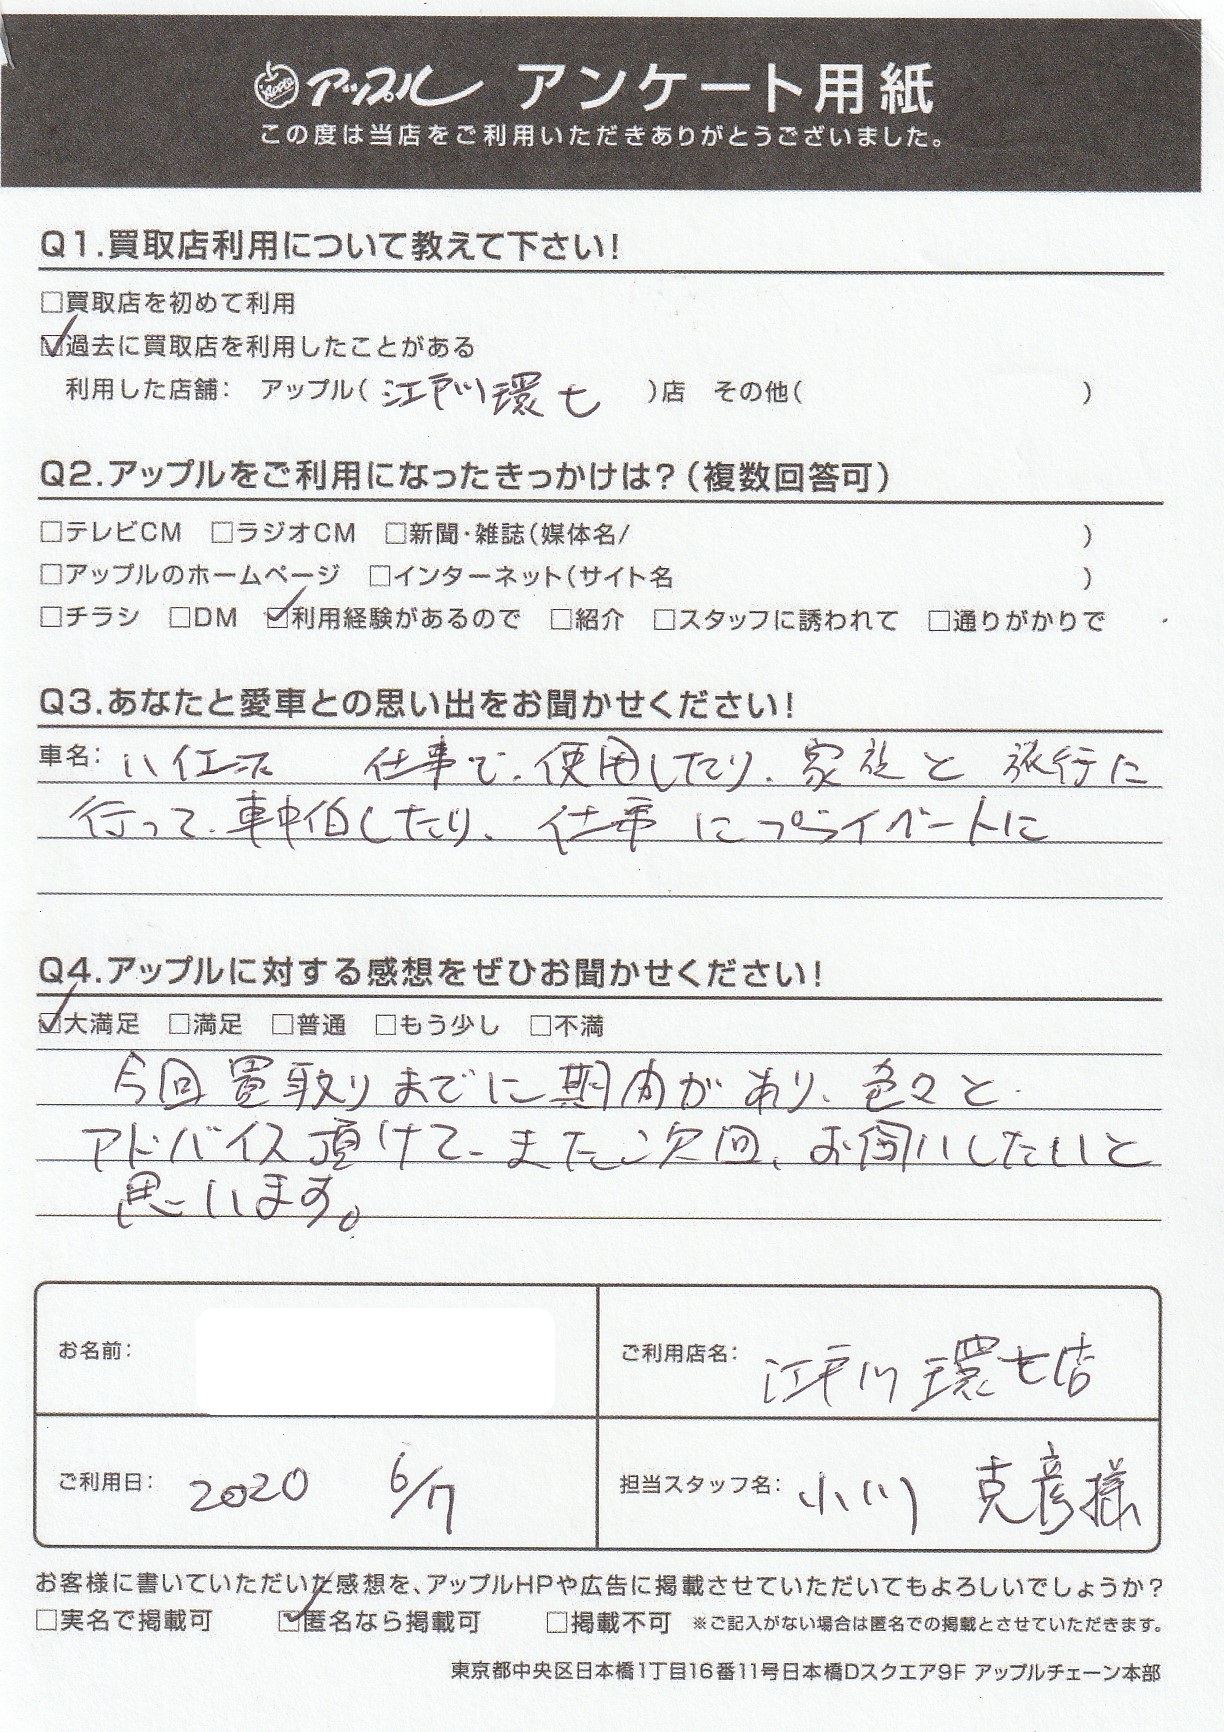 アップル アンケート用紙
この度は当店をご利用いただきありがとうございました。
Q1.買取店利用について教えて下さい!
□買取店を初めて利用
☑過去に買取店を利用したことがある
利用した店舗: アップル(江戸川環七)店 その他( )
Q2.アップルをご利用になったきっかけは?(複数回答可)
□テレビCM □ラジオCM □新聞・雑誌(媒体名/ )
□アップルのホームページ □インターネット(サイト名 )
□チラシ □DM ☑利用経験があるので □紹介 □スタッフに誘われて □通りがかりで
Q3.あなたと愛車との思い出をお聞かせください!
車名: ハイエース 仕事で、使用したり、家族と旅行に
行って、車中泊したり、仕事にプライベートに
Q4.アップルに対する感想をぜひお聞かせください!
☑大満足 □満足 □普通 □もう少し □不満
今回買取りまでに期間があり、色々と
アドバイス頂けて、また次回、お伺いしたいと
思います。
お名前:
ご利用店名: 江戸川環七店
ご利用日: 2020 6/7
担当スタッフ名: 小川 克彦様
お客様に書いていただいた感想を、アップルHPや広告に掲載させていただいてもよろしいでしょうか?
□実名で掲載可 ☑匿名なら掲載可 □掲載不可 ※ご記入がない場合は匿名での掲載とさせていただきます。
東京都中央区日本橋1丁目16番11号日本橋Dスクエア9F アップルチェーン本部